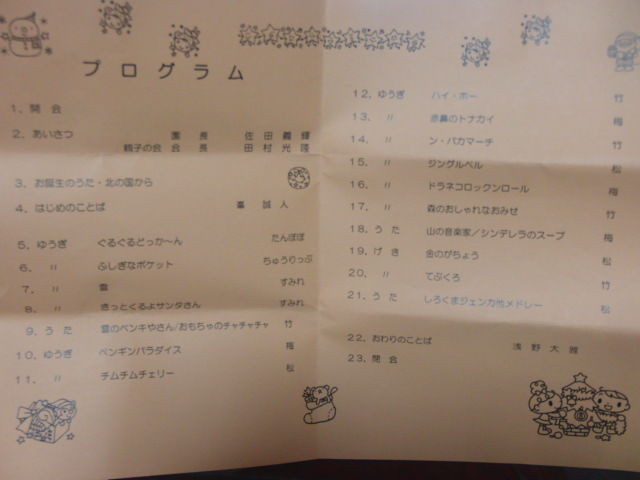 プログラム
1. 開会
2. あいさつ 園長 佐田義輝
親子の会会長 田村光陵
3. お誕生のうた・北の国から
4. はじめのことば 誠人
5. ゆうぎ ぐるぐるどっか〜ん たんぽぽ
6. 〃 ふしぎなポケット ちゅうりっぷ
7. 〃 雪 すみれ
8. 〃 きっとくるよサンタさん すみれ
9. うた 雪のペンキやさん/おもちゃのチャチャチャ 竹
10. ゆうぎ ペンギンパラダイス 梅
11. 〃 チムチムチェリー 松
12. ゆうぎ ハイ・ホー 竹
13. 〃 赤鼻のトナカイ 梅
14. 〃 ン・パカマーチ 竹
15. 〃 ジングルベル 松
16. 〃 ドラネコロックンロール 梅
17. 〃 森のおしゃれなおみせ 竹
18. うた 山の音楽家/シンデレラのスープ 梅
19. げき 金のがちょう 松
20. 〃 てぶくろ 竹
21. うた しろくまジェンカ他メドレー 松
22. おわりのことば 浅野大雅
23. 閉会